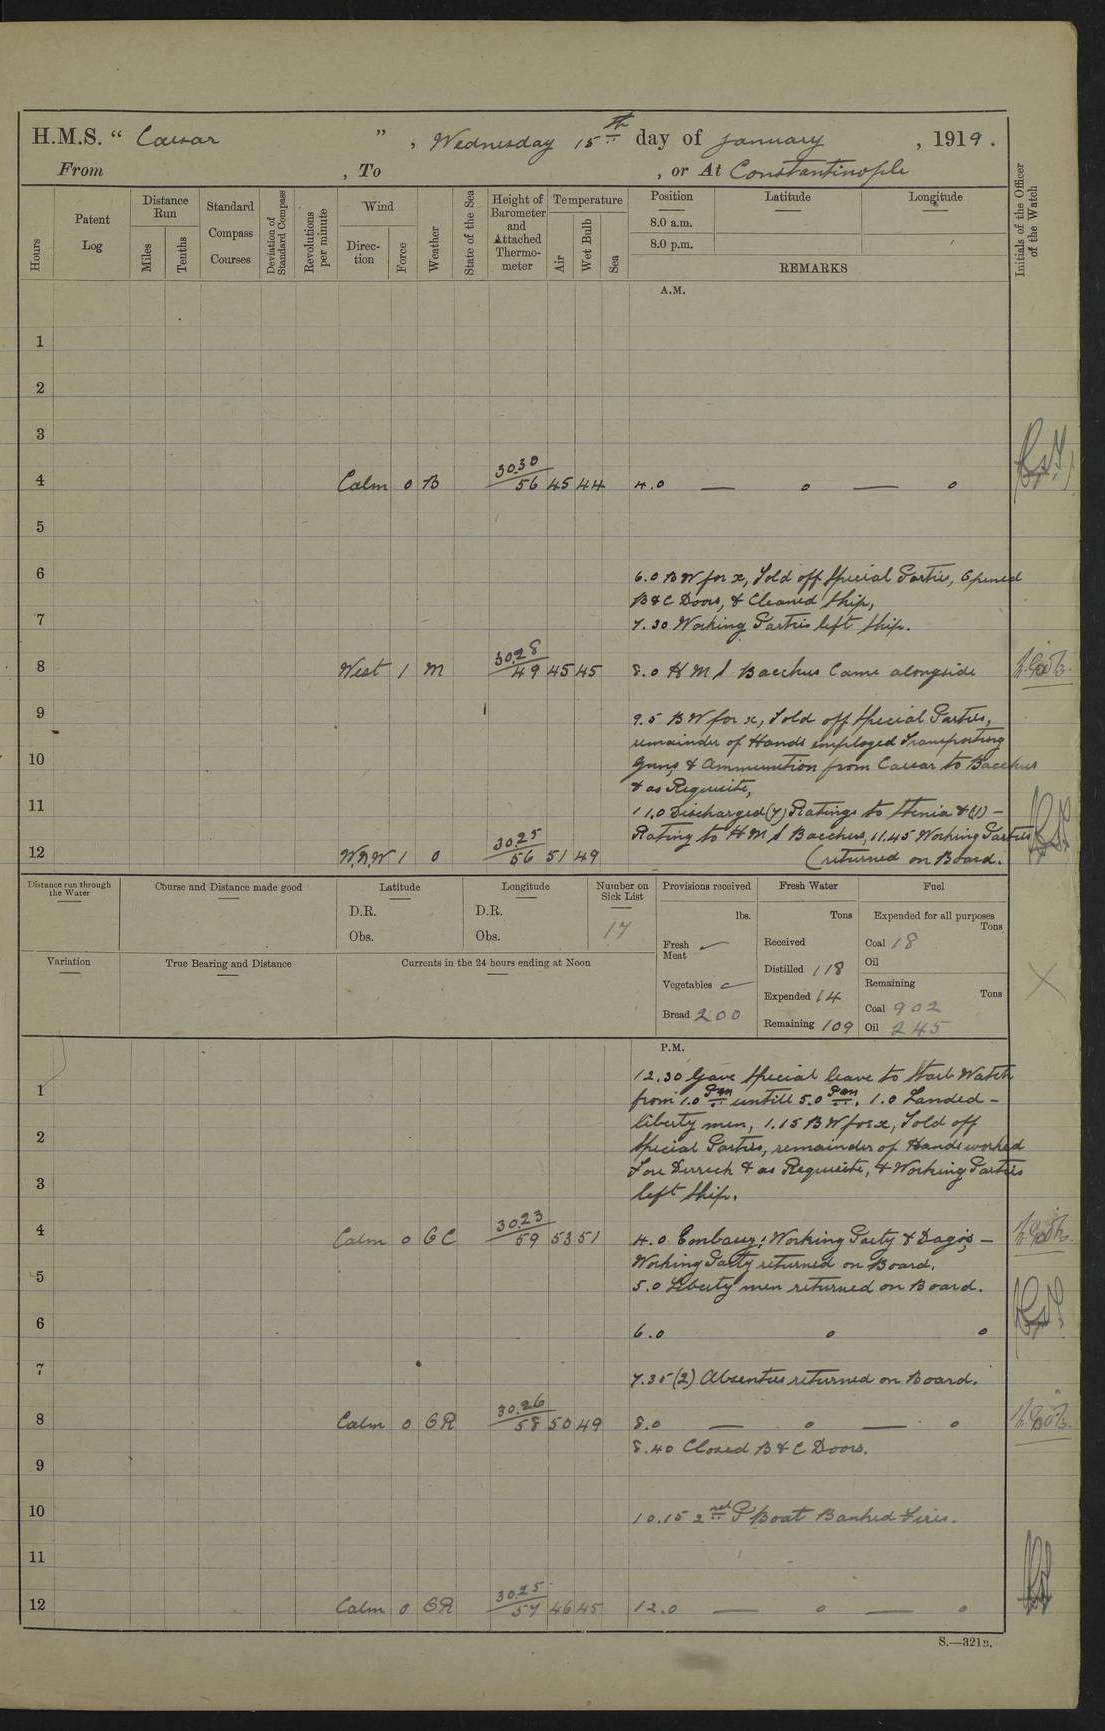 H.M.S. “ Caesar ” , Wednesday 15th day of January , 1919 .
From , To , or At Constantinople
Hours
Patent Log
Distance Run
Miles
Tenths
Standard Compass Courses
Deviation of Standard Compass
Revolutions per minute
Wind
Direc-tion
Force
Weather
State of the Sea
Height of Barometer and Attached Thermo-meter
Temperature
Air
Wet Bulb
Sea
Position Latitude Longitude
8.0 a.m.
8.0 p.m.
REMARKS
Initials of the Officer of the Watch
A.M.
1
2
3
4 Calm 0 B 30.30 56 45 44 4.0 — o — o
5
6 6.0 B W for x, Told off Special Parties, Opened
B & C Doors, & Cleaned Ship,
7 7.30 Working Parties left Ship.
8 West 1 M 30.28 49 45 45 8.0 H M S Bacchus Came alongside
9 9.5 B W for x, Told off Special Parties,
remainder of Hands employed Transporting
10 Guns & Ammunition from Caesar to Bacchus
& as Requisite,
11 11.0 Discharged (7) Ratings to Stenia & (1) –
Rating to H M S Bacchus, 11.45 Working Parties
12 W.N.W 1 O 30.25 56 51 49 (returned on Board.
Distance run through the Water
Course and Distance made good
Latitude
D.R.
Obs.
Longitude
D.R.
Obs.
Number on Sick List
17
Provisions received
lbs.
Fresh Meat
Vegetables
Bread 200
Fresh Water
Tons
Received
Distilled 118
Expended 14
Remaining 109
Fuel
Expended for all purposes
Tons
Coal 18
Oil
Remaining
Tons
Coal 902
Oil 245
Variation
True Bearing and Distance
Currents in the 24 hours ending at Noon
P.M.
12.30 Gave Special leave to Starb Watch
1 from 1.0 Pm untill 5.0 Pm. 1.0 Landed –
liberty men, 1.15 B W for x, Told off
2 Special Parties, remainder of Hands worked
Fore Derrick & as Requisite, & Working Parties
3 left Ship.
4 Calm 0 G C 30.23 59 53 51 4.0 Embassy: Working Party & Dago's –
Working Party returned on Board.
5 5.0 Liberty men returned on Board.
6 6.0 o o
7 7.35 (2) Absentees returned on Board.
8 Calm 0 G R 30.26 58 50 49 8.0 — o — o
8.40 Closed B & C Doors.
9
10 10.15 2nd P Boat Banked Fires.
11
12 Calm 0 G R 30.25 57 46 45 12.0 — o — o
S.—321B.